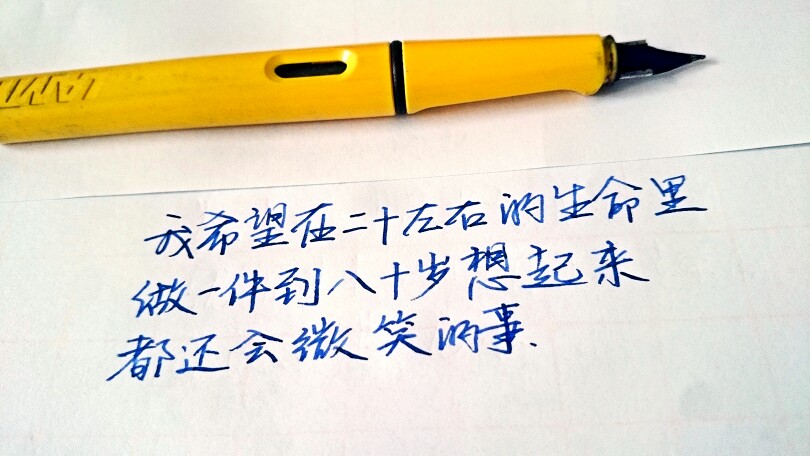 LAMY
我希望在二十左右的生命里
做一件到八十岁想起来
都还会微笑的事.